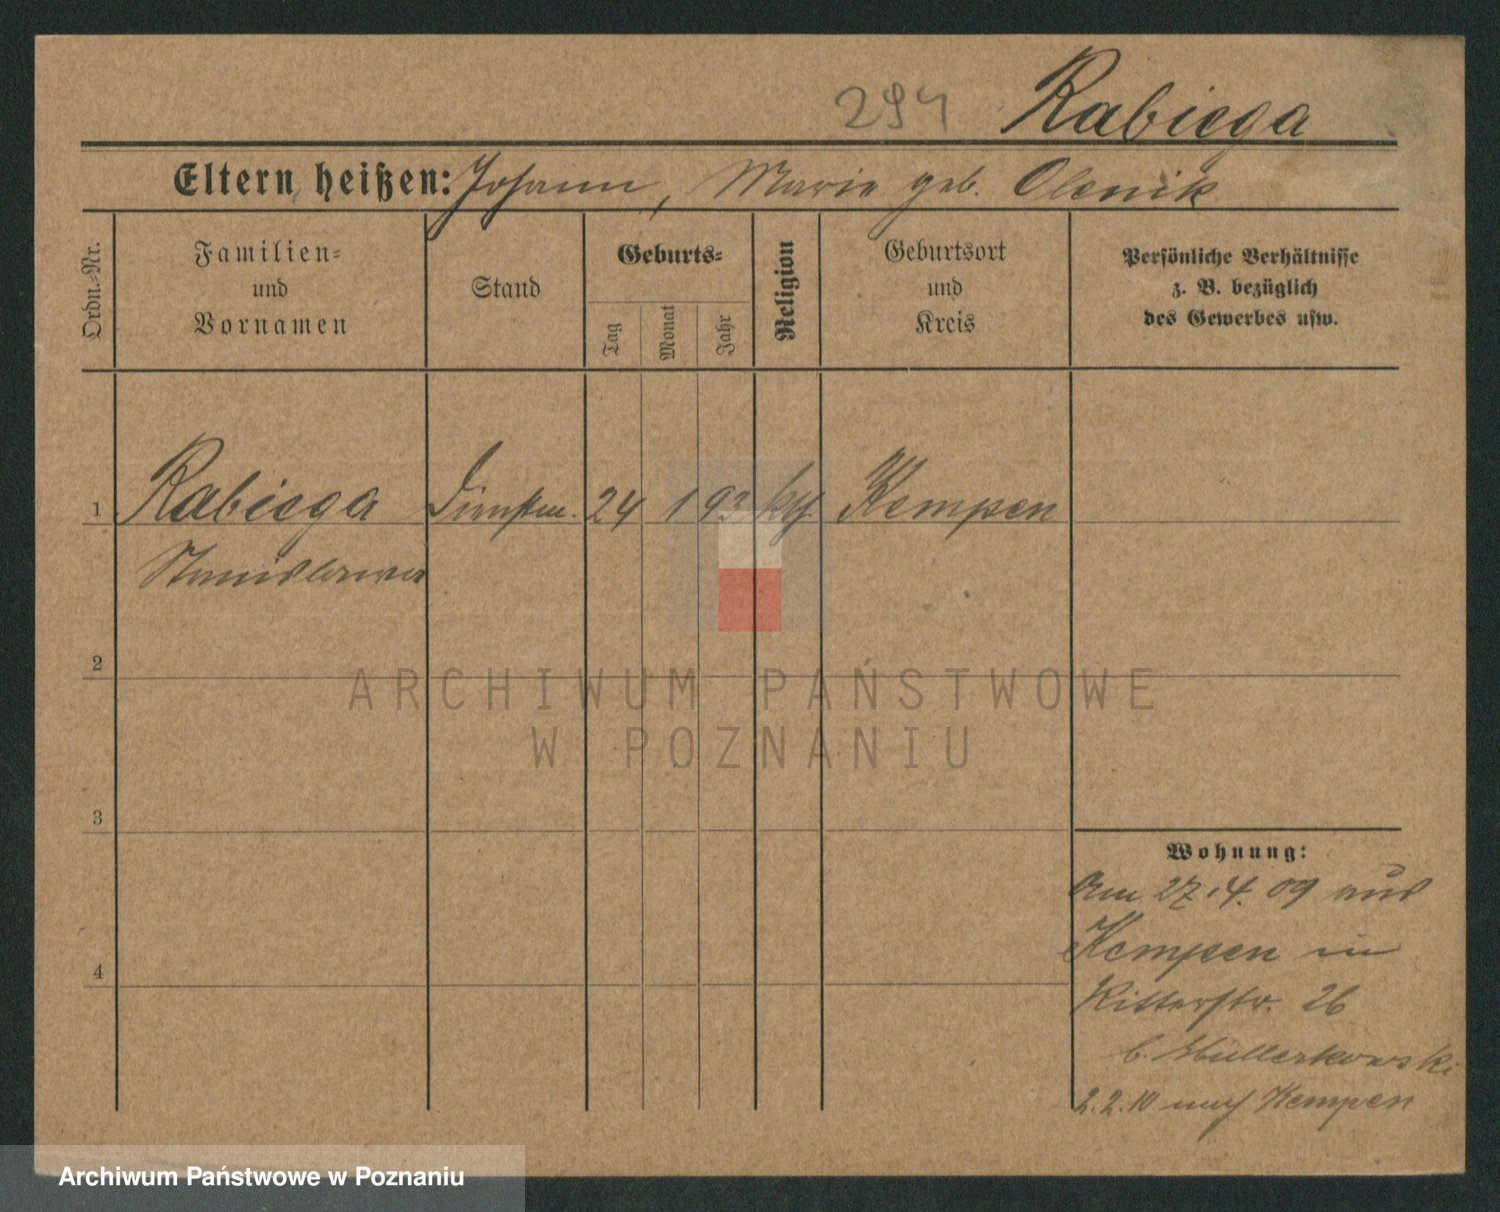 294 Rabiega
Eltern heißen: Johann, Marie geb. Olenik
Ordn.-Nr.
Familien-
und
Vornamen
Stand
Geburts-
Tag
Monat
Jahr
Religion
Geburtsort
und
Kreis
Persönliche Verhältnisse
z. B. bezüglich
des Gewerbes usw.
1 Rabiega 24 1 93 Kempen
Stanislawa
2
ARCHIWUM PAŃSTWOWE
W POZNANIU
3
Wohnung:
Am 27.4.09 aus
Kempen in
4
Ritterstr. 26
b. Müllerkowski
2.2.10 nach Kempen
Archiwum Państwowe w Poznaniu